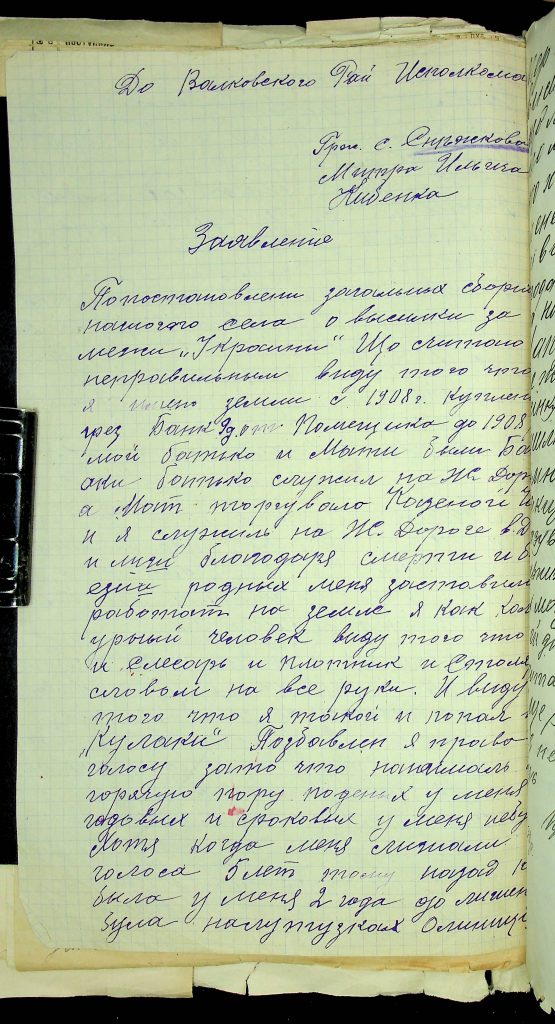 До Валковского Рай Исполкома
Гром. с. Сніжкова
Митра Ильича
Заявление
Попостановлени загальных сборів
нашого села о высилки за
межи „Украини“ Що считаю
неправильным виду того что
я имею земли с 1908 г. куплен
чрез Банк от Помещика до 1908
мой батько и мати были Ба
аки батько служил на Ж. Дор
а мат торгувала
и я служил на Ж. Дороге в. Д
и лиш благодаря смерти и
родных меня заставили
работат на земле я как кол
урный человек виду того что
и слесарь и плотник и столя
словом на все руки. И виду
того что я такой и попал в
„Кулаки“ Позбавлен я право
голосу зато что нанималь в
горячую пору поденых у меня
годовых и сроковых у меня небу
Хотя когда меня лишали
голоса 5 лет тому назад
была у меня 2 года до лишен
була